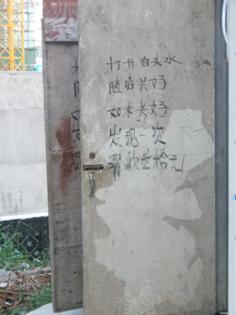 打开自来水
随后关好
如未关好
发现一次
罚款叁拾元